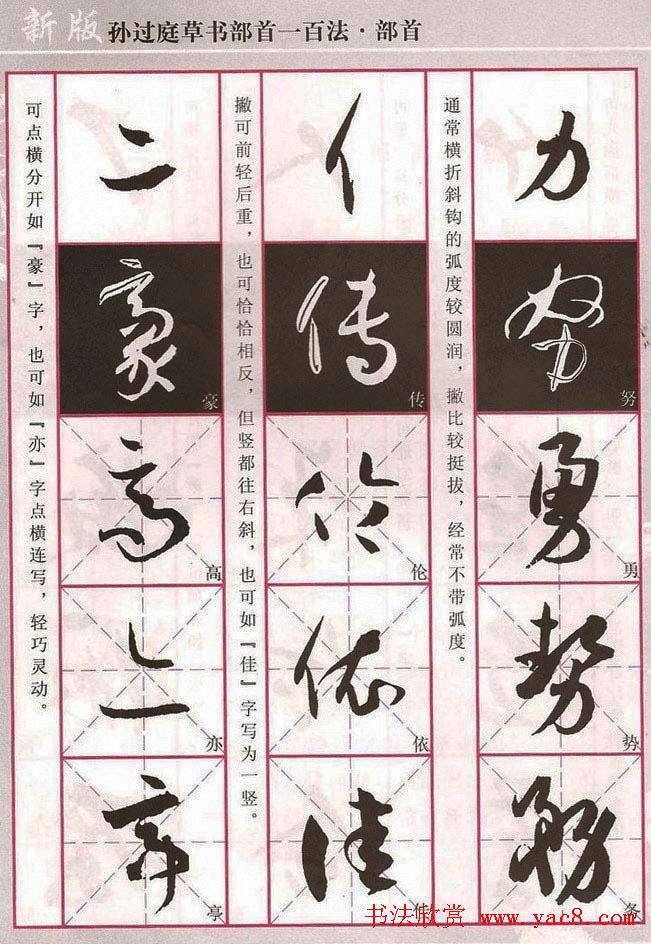 新版 孙过庭草书部首一百法·部首
力
努
勇
势
务
通常横折斜钩的弧度较圆润，撇比较挺拔，经常不带弧度。
亻
传
伦
依
佳
撇可前轻后重，也可恰恰相反，但竖都往右斜，也可如『佳』字写为一竖。
亠
豪
高
亦
享
可点横分开如『豪』字，也可如『亦』字点横连写，轻巧灵动。
书法欣赏 www.yac8.com